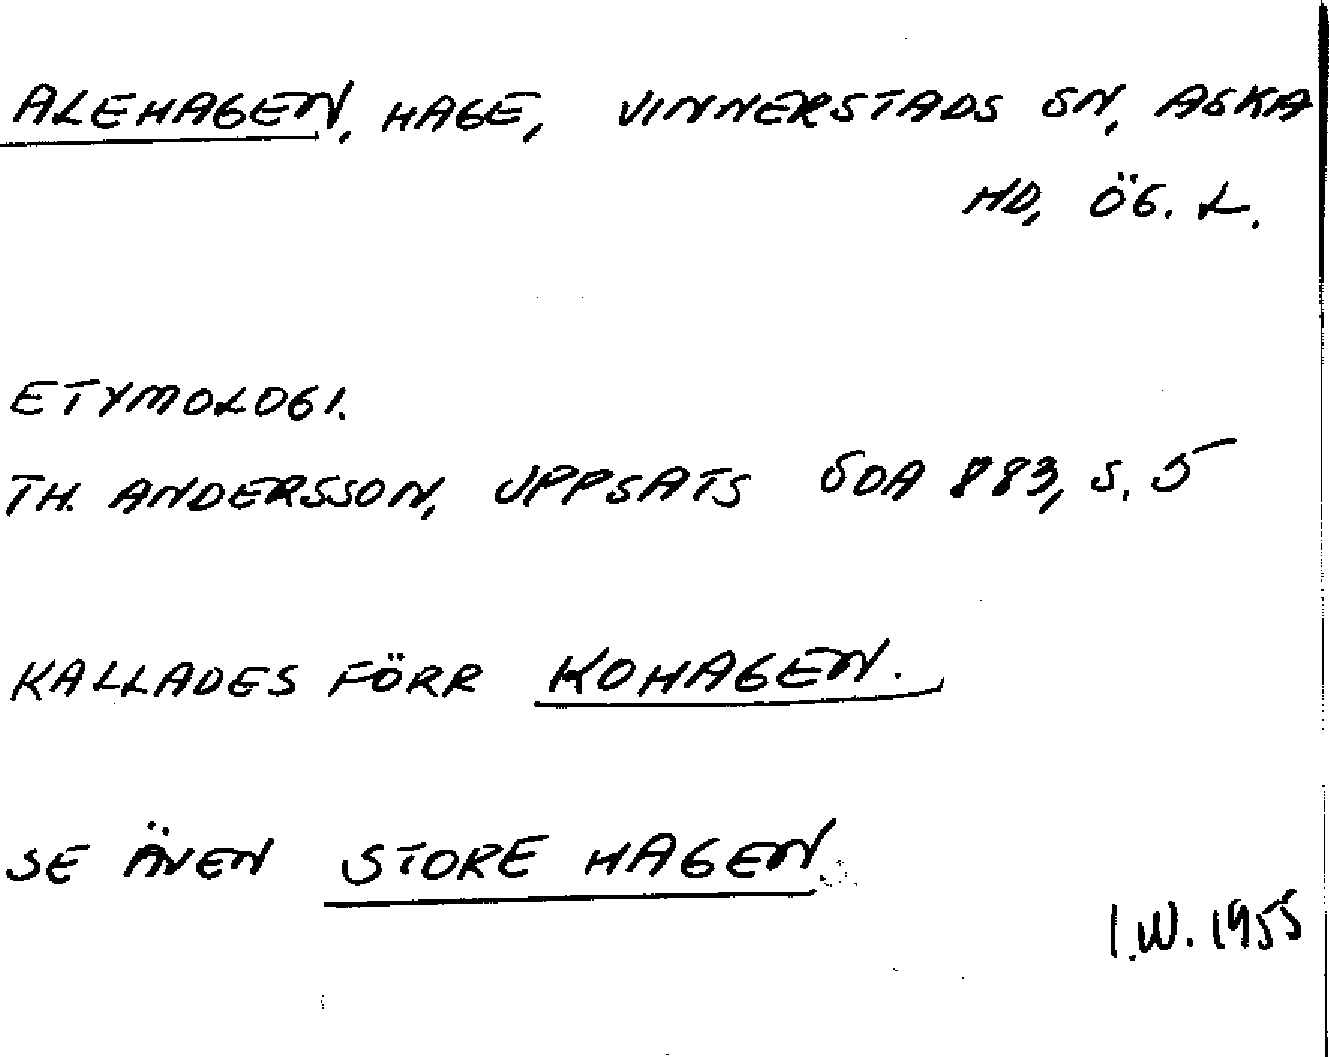 ALEHAGEN, HAGE, VINNERSTADS SN, ASKA
HD, ÖG. L.
ETYMOLOGI.
TH. ANDERSSON, UPPSATS SOA 883, S. 5
KALLADES FÖRR KOHAGEN.
SE ÄVEN STORE HAGEN
I.W. 1955